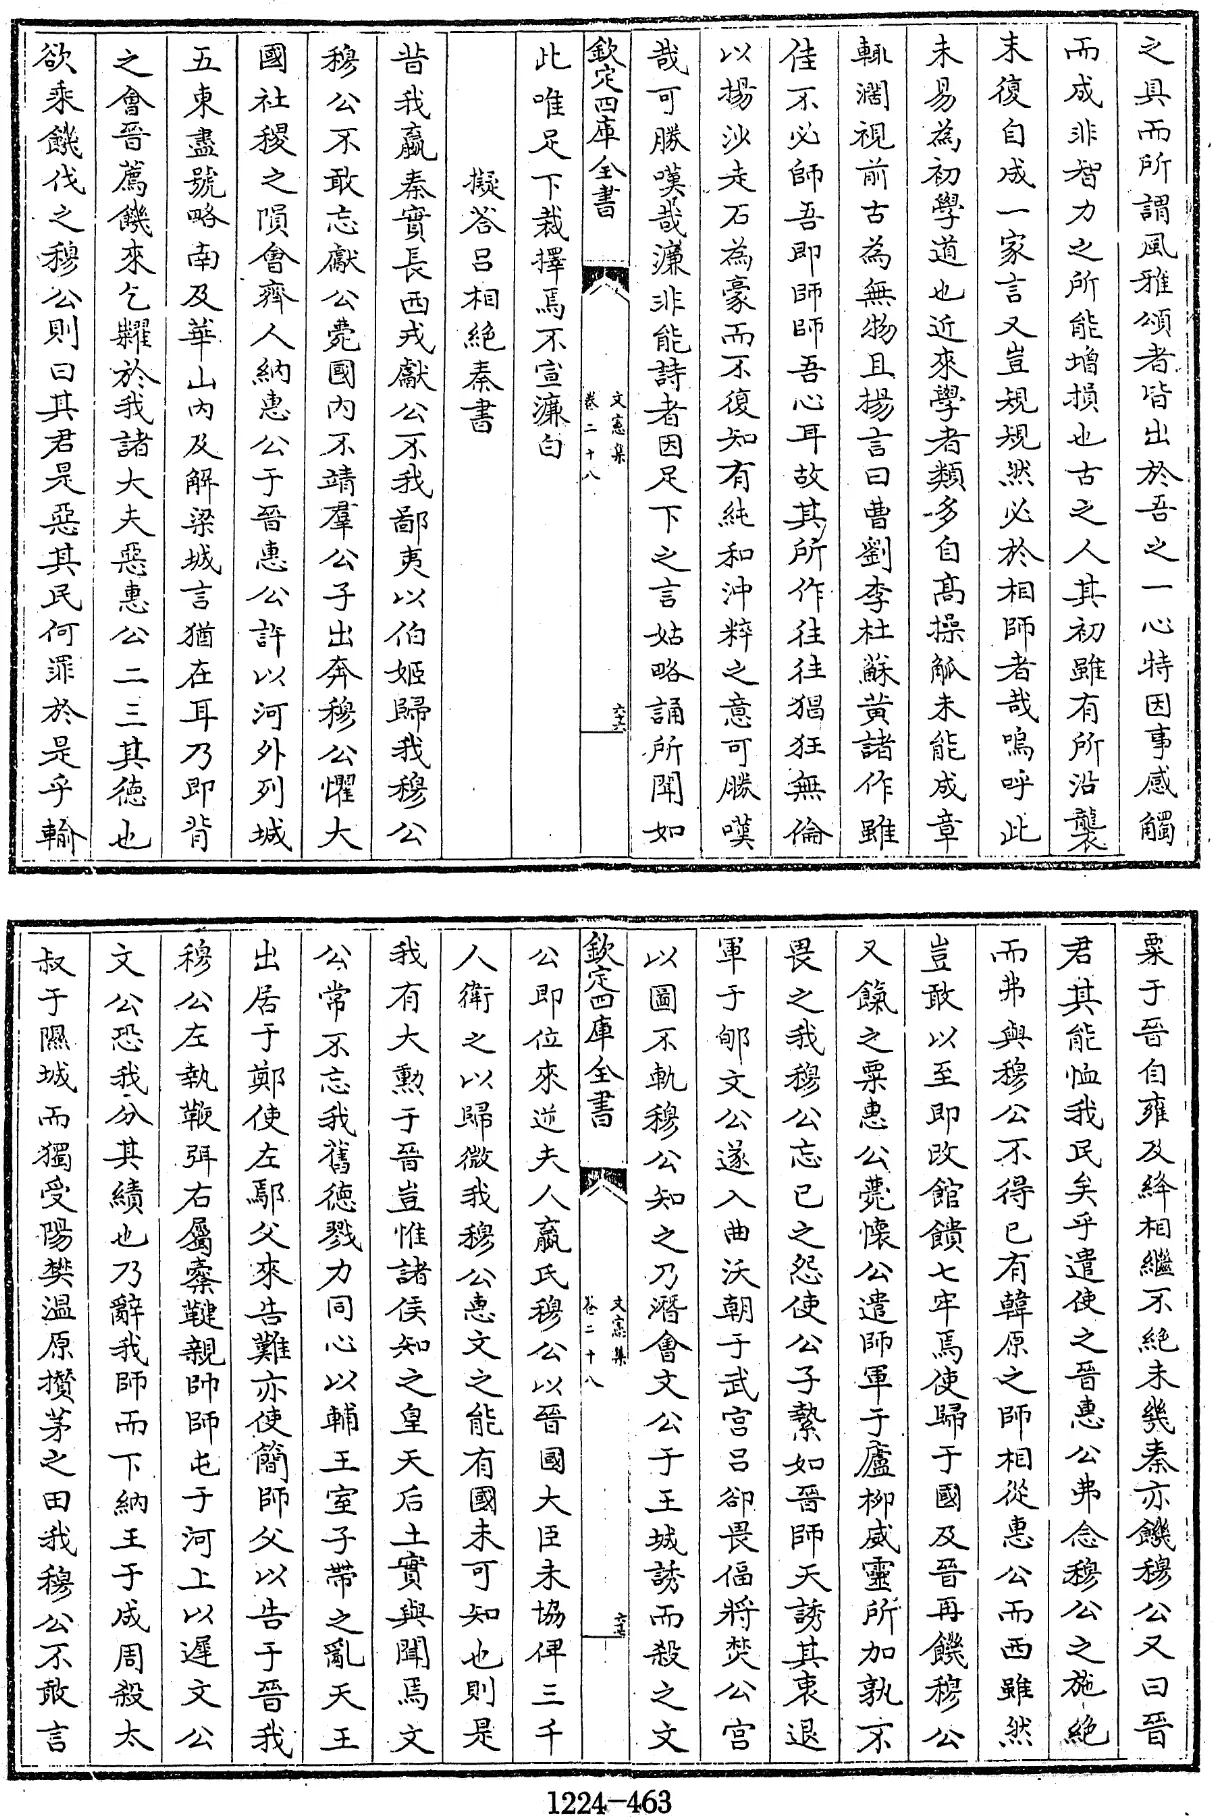 之具而所謂風雅頌者皆出於吾之一心特因事感觸
而成非智力之所能增損也古之人其初雖有所沿襲
末復自成一家言又豈規規然必於相師者哉嗚呼此
未易為初學道也近來學者類多自髙操觚未能成章
輒濶視前古為無物且揚言曰曹劉李杜蘇黄諸作雖
佳不必師吾即師師吾心耳故其所作徃徃猖狂無倫
以揚沙走石為豪而不復知有純和沖粹之意可勝嘆
哉可勝嘆哉濂非能詩者因足下之言姑略誦所聞如
欽定四庫全書
文憲集
卷二十八
六十六
此唯足下裁擇焉不宣濂白
擬答呂相絶秦書
昔我嬴秦實長西戎獻公不我鄙夷以伯姬歸我穆公
穆公不敢忘獻公薨國内不靖羣公子出奔穆公懼大
國社稷之隕會齊人納惠公于晉惠公許以河外列城
五東盡虢略南及華山内及解梁城言猶在耳乃即背
之會晉薦饑來乞糴於我諸大夫惡惠公二三其徳也
欲乘饑伐之穆公則曰其君是惡其民何罪於是乎輸
粟于晉自雍及絳相繼不絶未幾秦亦饑穆公又曰晉
君其能恤我民矣乎遣使之晉惠公弗念穆公之施絶
而弗與穆公不得已有韓原之師相從惠公而西雖然
豈敢以至即改館饋七牢焉使歸于國及晉再饑穆公
又餼之粟惠公薨懷公遣師軍于廬柳威靈所加孰不
畏之我穆公忘已之怨使公子縶如晉師天誘其衷退
軍于郇文公遂入曲沃朝于武宫吕郤畏偪將焚公宫
以圖不軌穆公知之乃潛會文公于王城誘而殺之文
欽定四庫全書
文憲集
卷二十八
六十七
公即位來逆夫人嬴氏穆公以晉國大臣未協俾三千
人衛之以歸微我穆公惠文之能有國未可知也則是
我有大勲于晉豈惟諸侯知之皇天后土實與聞焉文
公常不忘我舊徳戮力同心以輔王室子帶之亂天王
出居于鄭使左鄢父來告難亦使簡師父以告于晉我
穆公左執鞭弭右屬櫜鞬親帥師屯于河上以遲文公
文公恐我分其績也乃辭我師而下納王于成周殺太
叔于隰城而獨受陽樊温原攢茅之田我穆公不敢言
1224-463